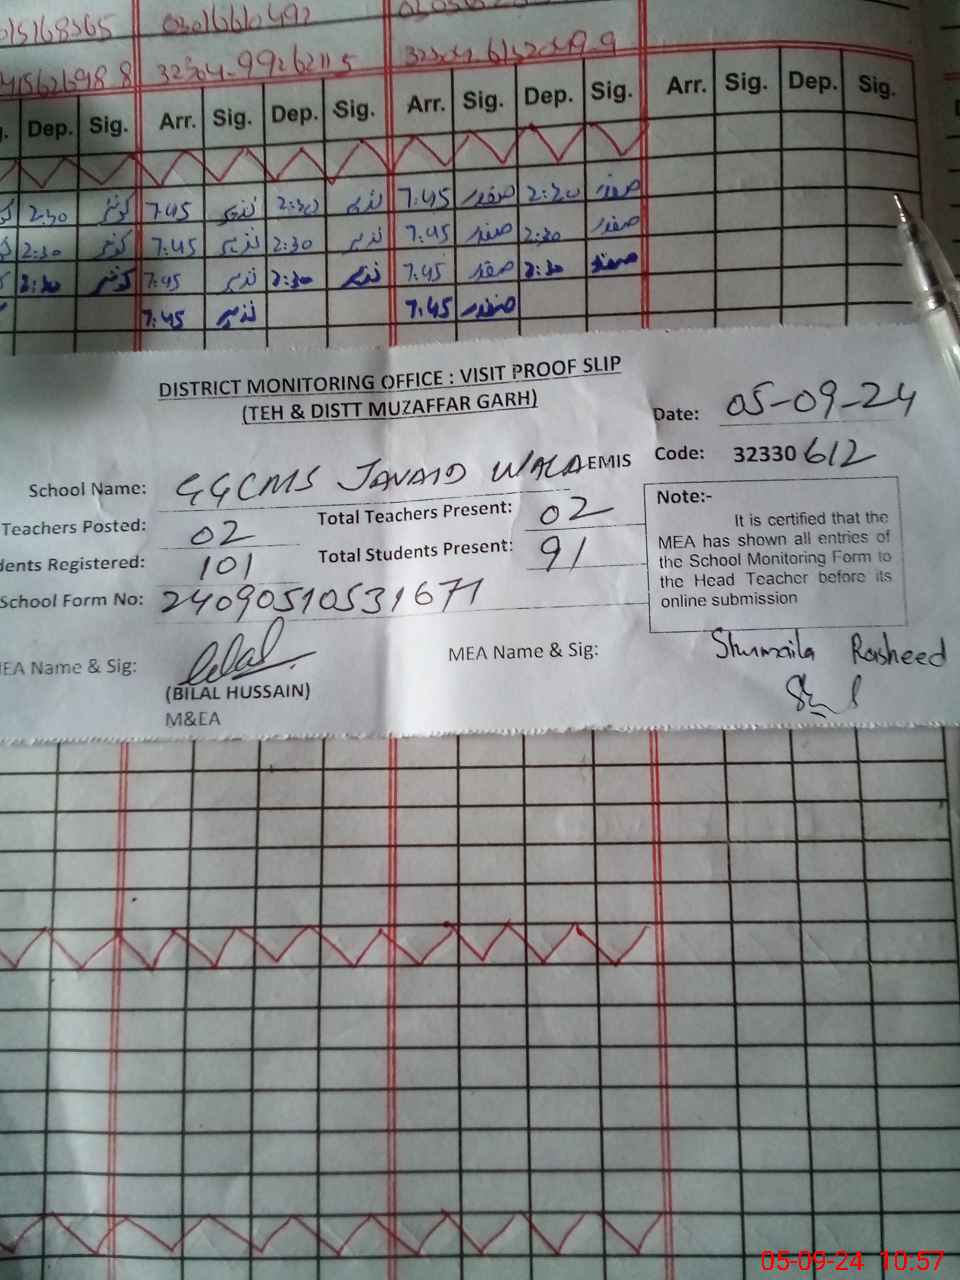 03016610492
32304-9926211 5
Dep. Sig. Arr. Sig. Dep. Sig. Arr. Sig. Dep. Sig. Arr. Sig. Dep. Sig.
2:30 کوثر 7:45 نذیر 2:30 نذیر 7:45 صفدر 2:30 صفدر
2:30 کوثر 7:45 نذیر 2:30 نذیر 7:45 صفدر 2:30 صفدر
2:30 کوثر 7:45 نذیر 2:30 نذیر 7:45 صفدر 2:30 صفدر
7:45 نذیر 7:45 صفدر
DISTRICT MONITORING OFFICE : VISIT PROOF SLIP
(TEH & DISTT MUZAFFAR GARH)
Date: 05-09-24
School Name: GGCMS JAVAID WALA EMIS Code: 32330612
Teachers Posted: 02 Total Teachers Present: 02
dents Registered: 101 Total Students Present: 91
School Form No: 24090510531671
Note:-
It is certified that the
MEA has shown all entries of
the School Monitoring Form to
the Head Teacher before its
online submission
MEA Name & Sig: Bilal MEA Name & Sig: Shumaila Rasheed
(BILAL HUSSAIN)
M&EA
05-09-24 10:57